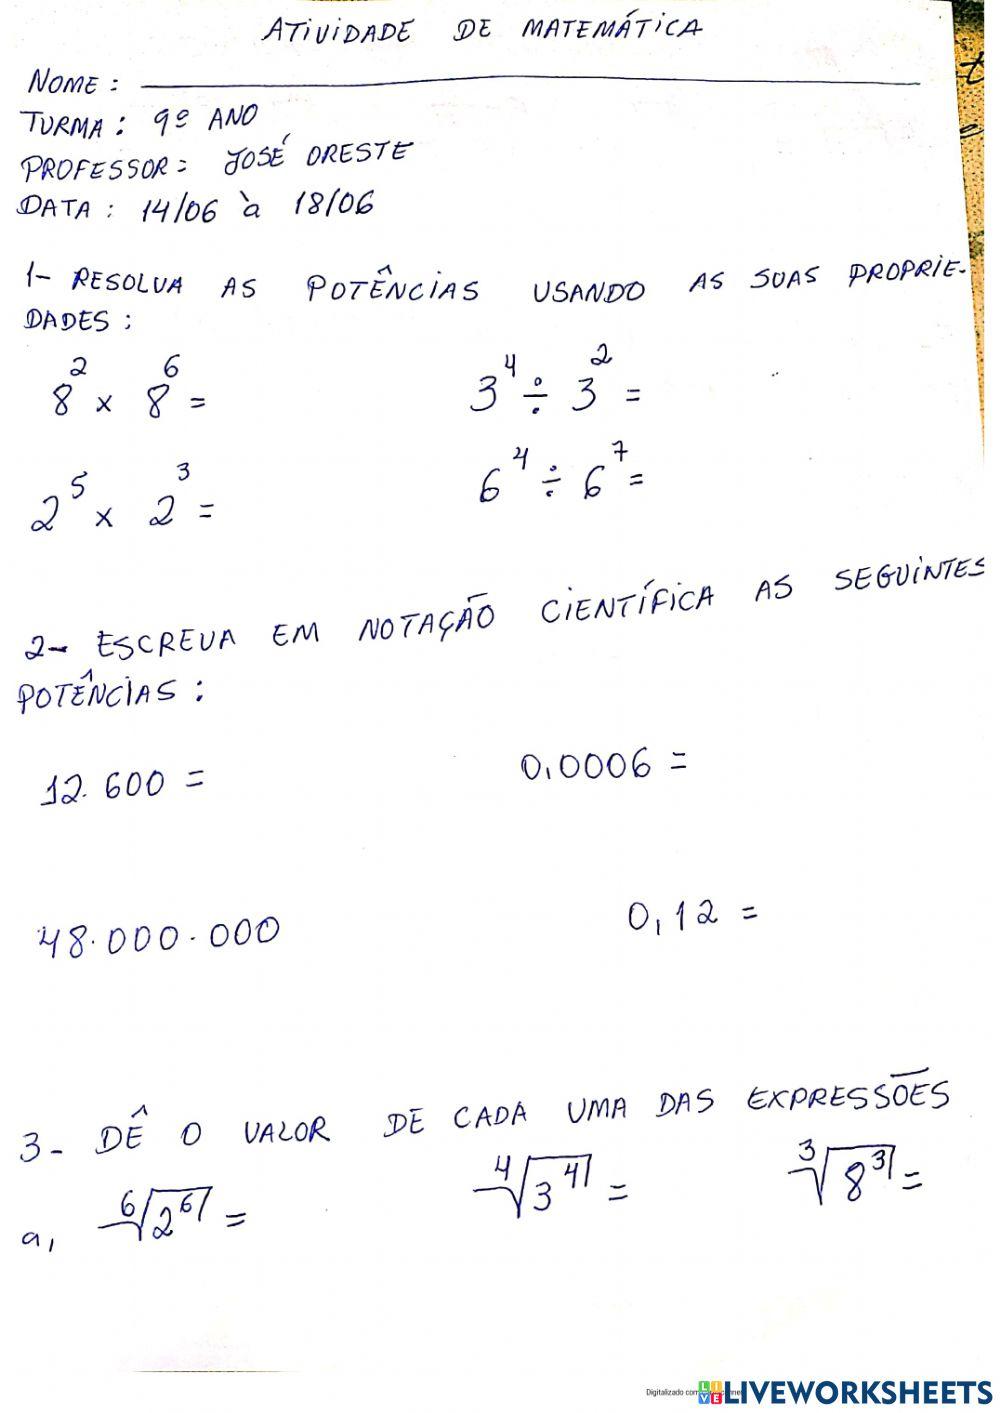 ATIVIDADE DE MATEMÁTICA
NOME :
TURMA : 9º ANO
PROFESSOR : JOSÉ ORESTE
DATA : 14/06 à 18/06
1- RESOLVA AS POTÊNCIAS USANDO AS SUAS PROPRIE-
DADES :
8² x 8⁶ = 3⁴ ÷ 3² =
2⁵ x 2³ = 6⁴ ÷ 6⁷ =
2- ESCREVA EM NOTAÇÃO CIENTÍFICA AS SEGUINTES
POTÊNCIAS :
12.600 = 0,0006 =
48.000.000 0,12 =
3- DÊ O VALOR DE CADA UMA DAS EXPRESSÕES
a, ⁶√2⁶ = ⁴√3⁴ = ³√8³ =
Digitalizado com
LIVE LIVEWORKSHEETS